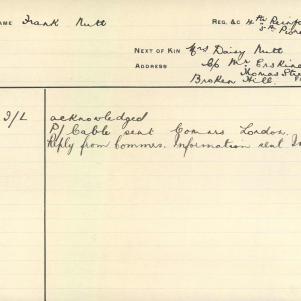 AME Frank Nutt
REG. &C
NEXT OF KIN Mrs Daisy Nutt
ADDRESS C/o Mr Erskine
Thomas Stre
Broken Hill.
I/L acknowledged
P/ Cable sent Commrs London.
Reply from Commrs. Information sent